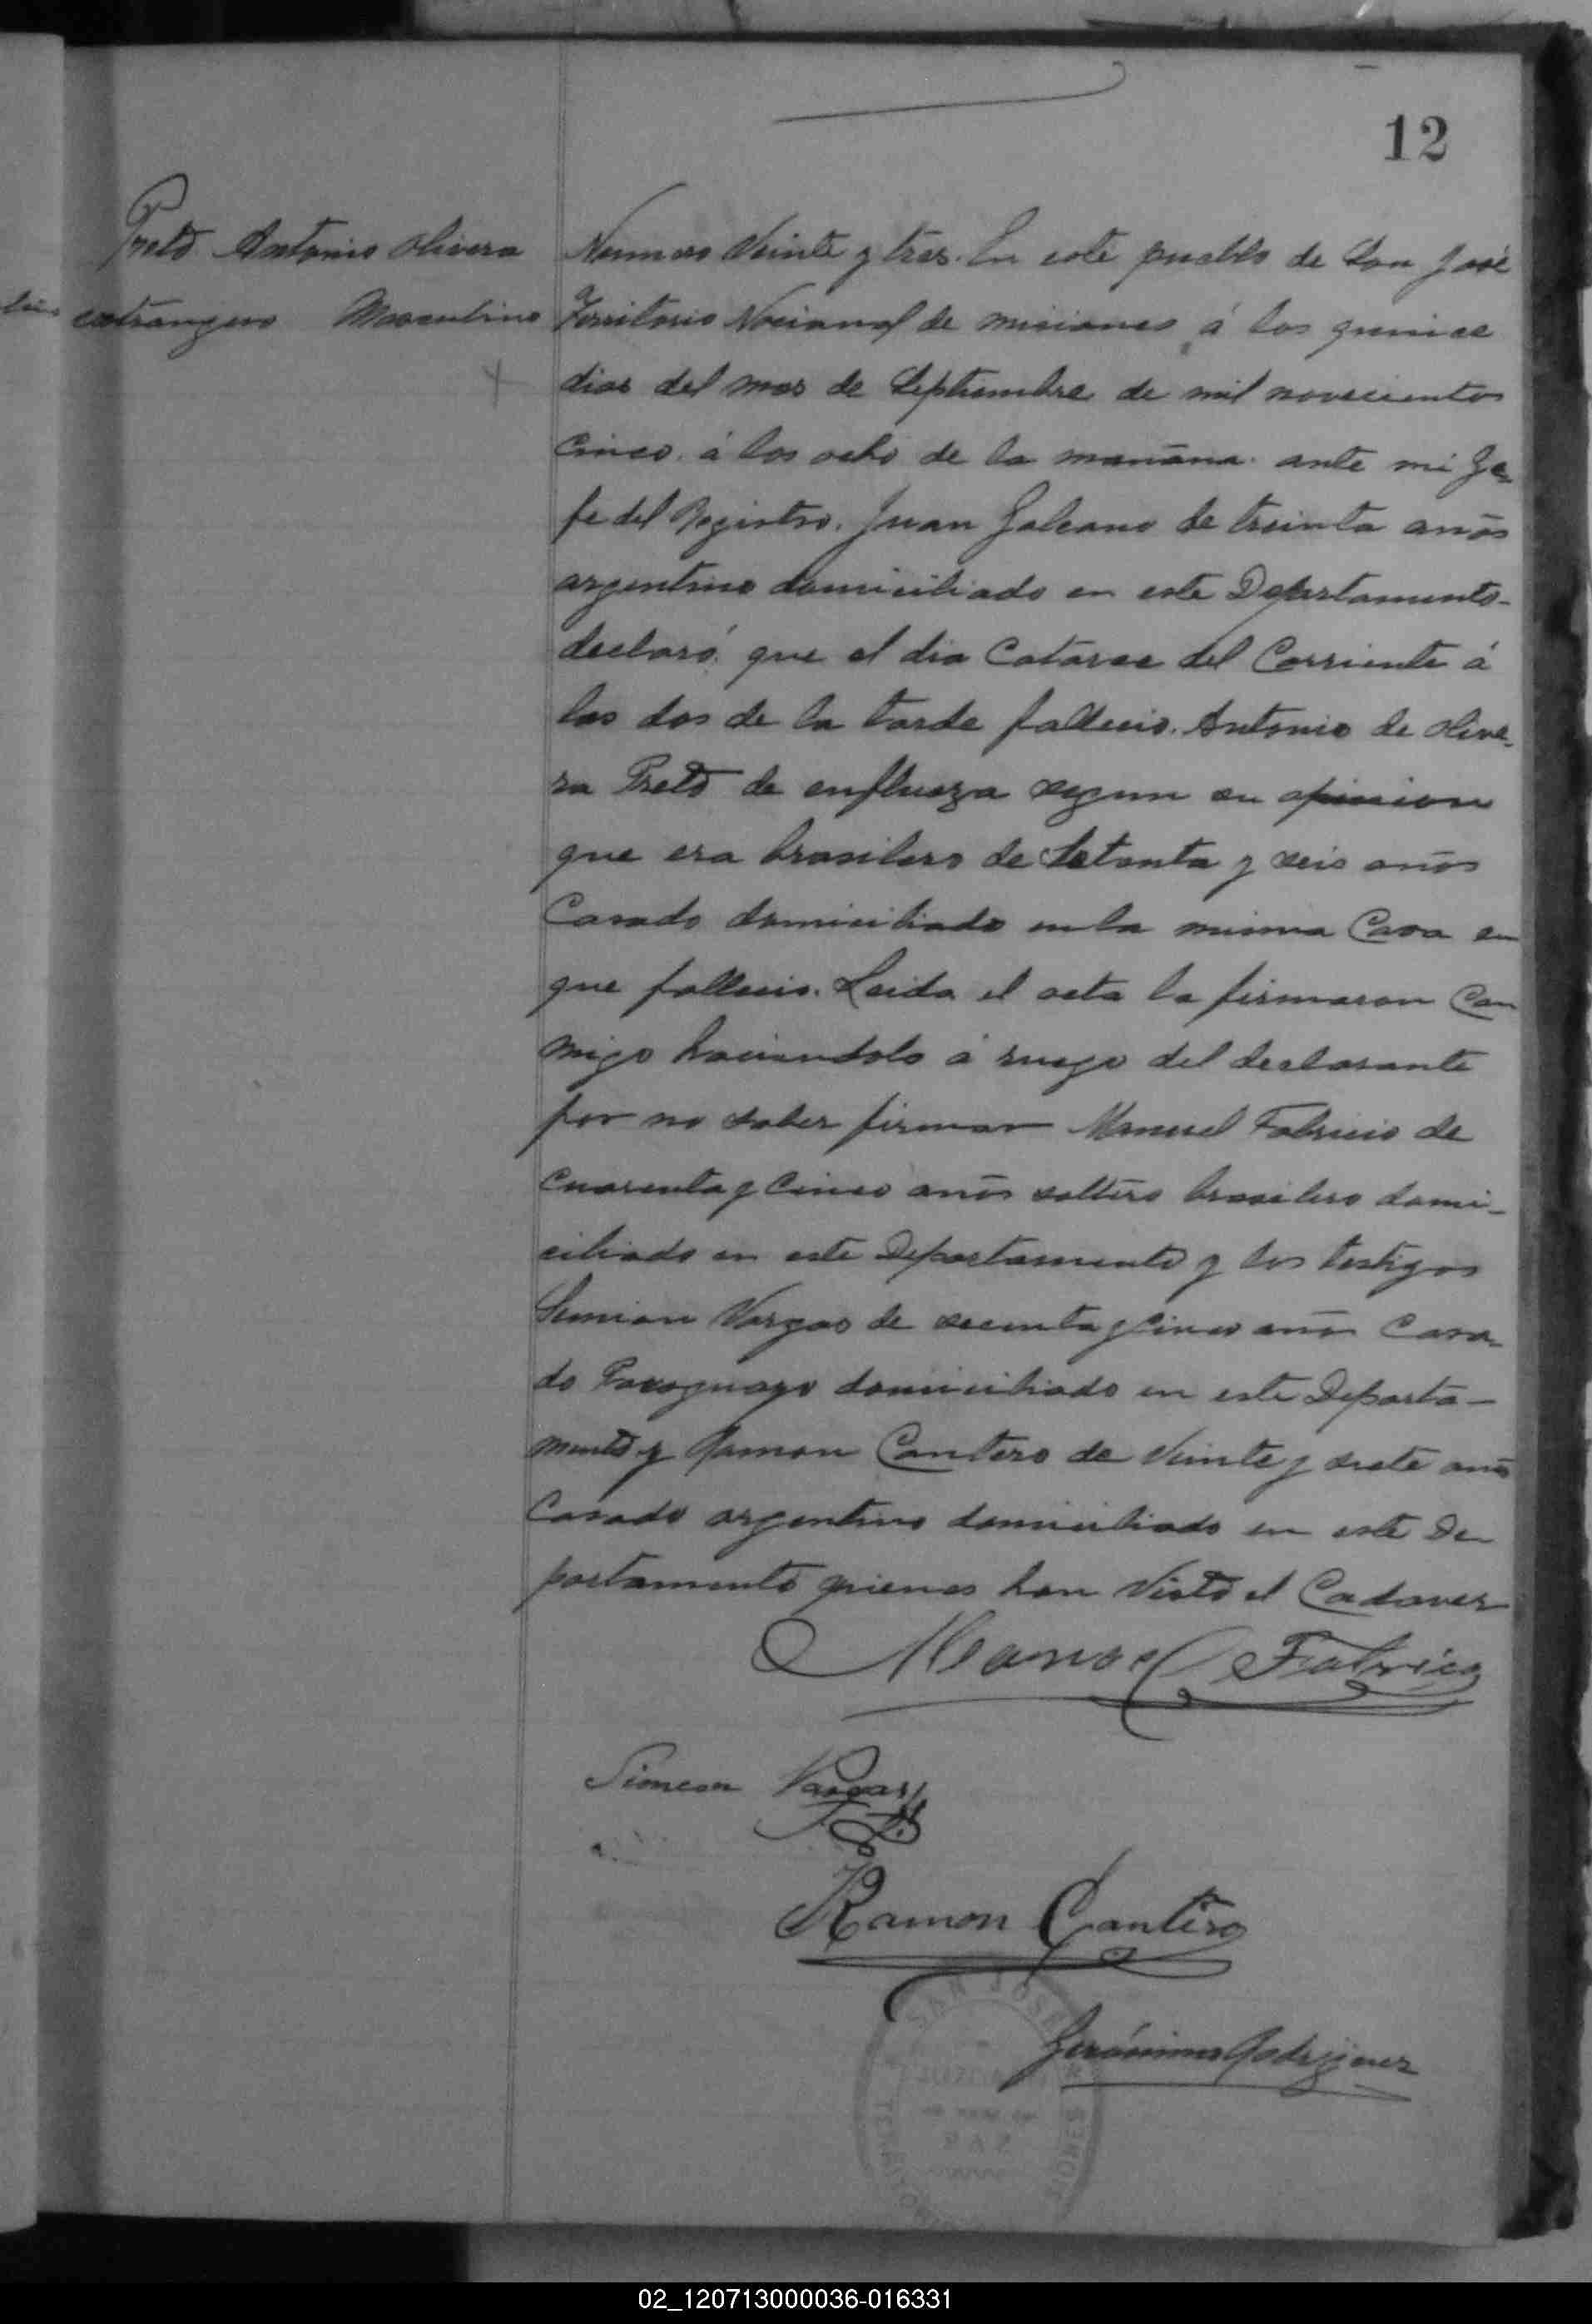 12
Preto Antonio Olivera
extrangero Masculino
Numero Veinte y tres. En este pueblo de San José
Territorio Nacional de misiones á los quince
dias del mes de Septiembre de mil novecientos
Cinco á las ocho de la mañana ante mi Je-
fe del Registro. Juan Galeano de treinta años
argentino domiciliado en este Departamento
declaró: que el dia Catorce del Corriente á
las dos de la tarde fallecio. Antonio de Olive-
ra Preto de enflueza segun su opinion
que era brasilero de Setenta y seis años
Casado domiciliado en la misma Casa en
que fallecio. Leida el acta la firmaron Con
migo haciendolo á ruego del declarante
por no saber firmar Manuel Fabricio de
Cuarenta y Cinco años soltero brasilero domi-
ciliado en este Departamento y los testigos
Simion Vargas de secenta y Cinco años Casa-
do Paraguayo domiciliado en este Departa-
mento y Ramon Cantero de Veinte y siete años
Casado argentino domiciliado en este De
partamento quienes han Visto el Cadaver
Manoel Fabricio
Simeon Vargas
Ramon Cantero
Gerónimo Rodriguez
SAN JOSE
02_120713000036-016331